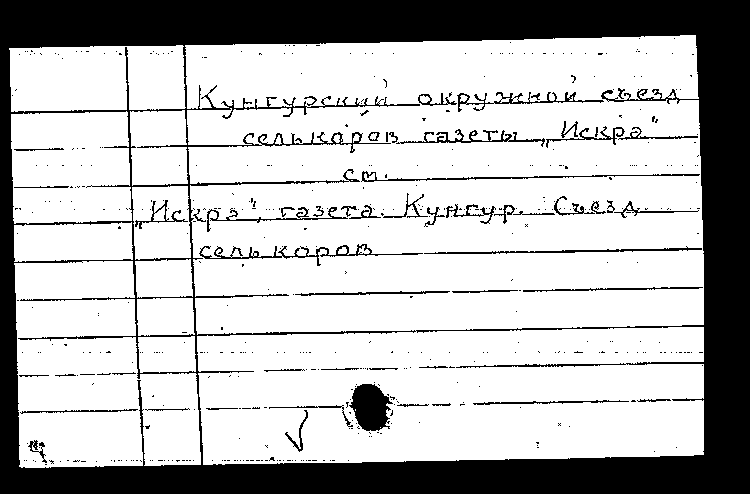 Кунгурский окружной съезд
селькоров газеты „Искра"
см.
„Искра", газета. Кунгур. Съезд
селькоров